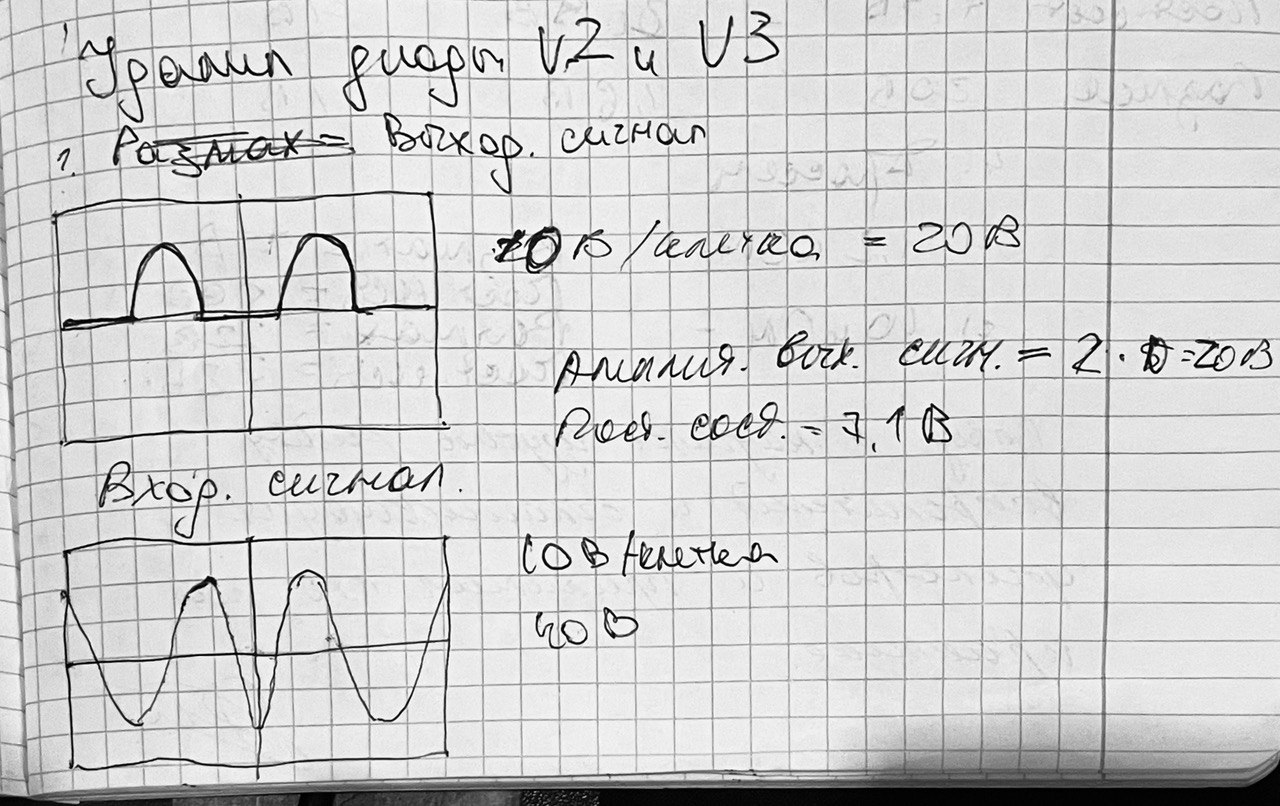 Удалил диоды V2 и V3
1. Размах = Выход. сигнал
10 В/клетка = 20 В
Амплит. вых. сигн. = 2 · 10 = 20 В
Пост. сост. = 7,1 В
Вход. сигнал.
10 В/клетка
40 В